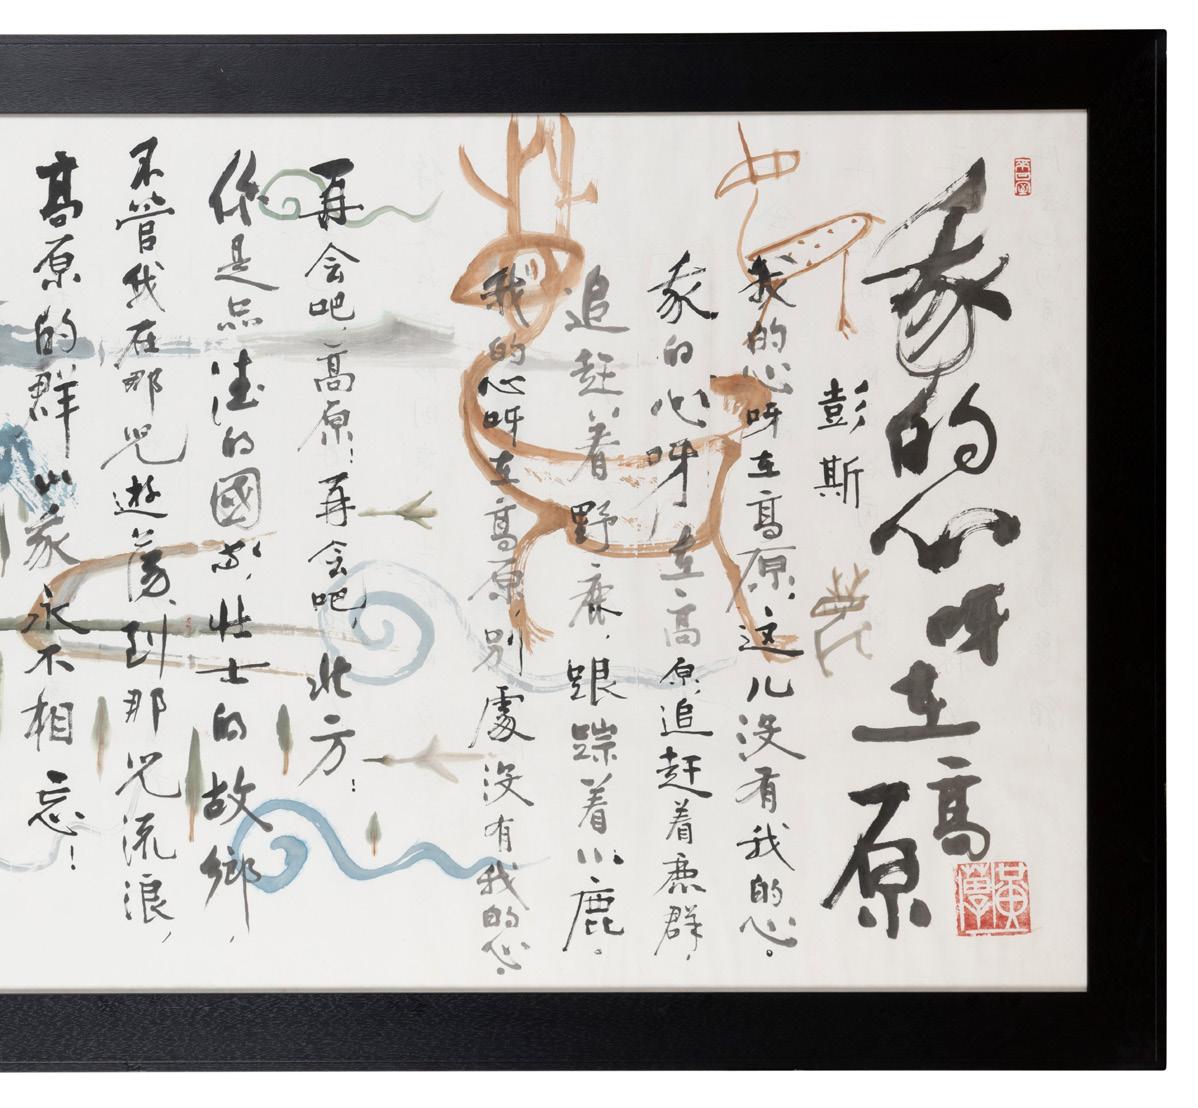 我的心呀在高原
彭斯
我的心呀在高原，这儿没有我的心。
我的心呀在高原，追赶着鹿群，
追赶着野鹿，跟踪着小鹿。
我的心呀在高原，别處没有我的心。
再会吧，高原！再会吧，北方！
你是品德的國家，壮士的故鄉，
不管我在那儿遊荡，到那儿流浪，
高原的群山我永不相忘！